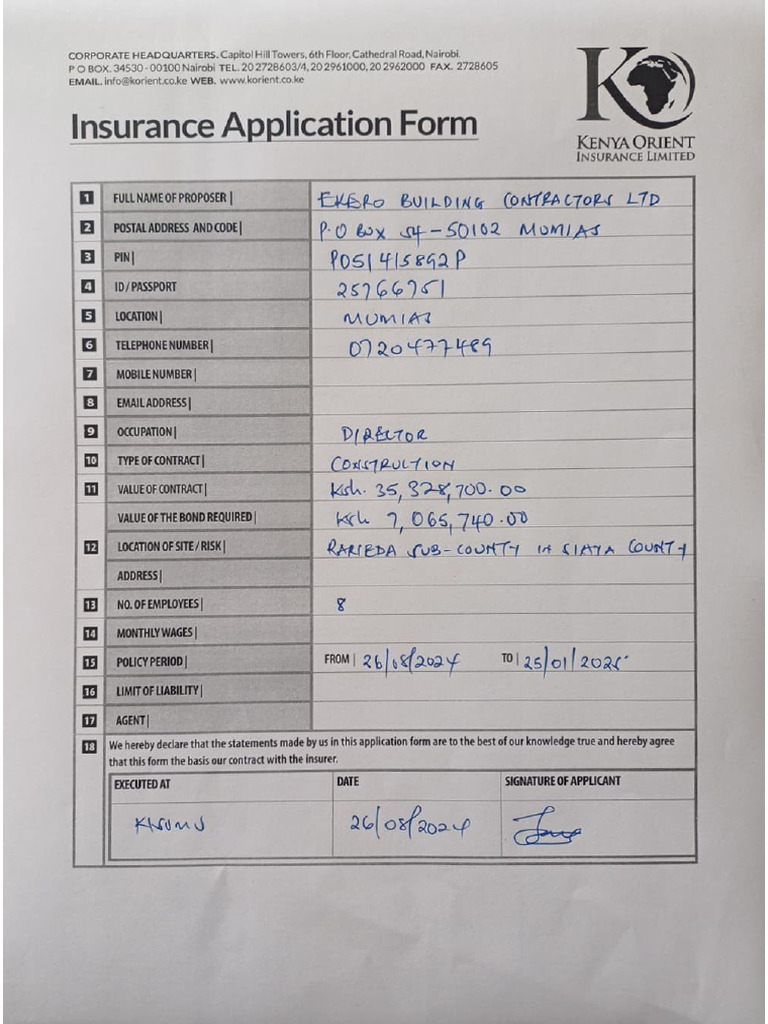 CORPORATE HEADQUARTERS. Capitol Hill Towers, 6th Floor, Cathedral Road, Nairobi.
P O BOX. 34530 - 00100 Nairobi TEL. 20 2728603/4, 20 2961000, 20 2962000 FAX. 2728605
EMAIL. info@korient.co.ke WEB. www.korient.co.ke
Insurance Application Form
KENYA ORIENT
INSURANCE LIMITED
1 FULL NAME OF PROPOSER | EKERO BUILDING CONTRACTORS LTD
2 POSTAL ADDRESS AND CODE | P.O BOX 54 - 50102 MUMIAS
3 PIN | P051415892P
4 ID/PASSPORT 25766751
5 LOCATION | MUMIAS
6 TELEPHONE NUMBER | 0720477489
7 MOBILE NUMBER |
8 EMAIL ADDRESS |
9 OCCUPATION | DIRECTOR
10 TYPE OF CONTRACT | CONSTRUCTION
11 VALUE OF CONTRACT | Ksh. 35,328,700.00
VALUE OF THE BOND REQUIRED | Ksh 7,065,740.00
12 LOCATION OF SITE / RISK | RARIEDA SUB-COUNTY IN SIAYA COUNTY
ADDRESS |
13 NO. OF EMPLOYEES | 8
14 MONTHLY WAGES |
15 POLICY PERIOD | FROM | 26/08/2024 TO | 25/01/2025
16 LIMIT OF LIABILITY |
17 AGENT |
18 We hereby declare that the statements made by us in this application form are to the best of our knowledge true and hereby agree
that this form the basis our contract with the insurer.
EXECUTED AT DATE SIGNATURE OF APPLICANT
KISUMU 26/08/2024